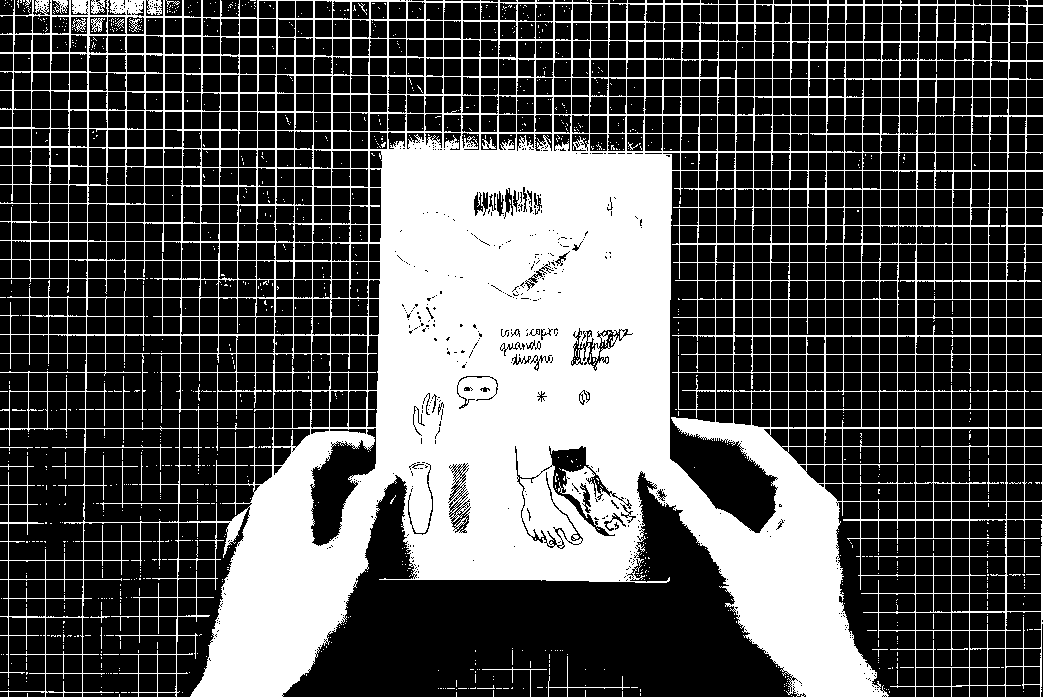 cosa scopro
quando
disegno
cosa scopro
quando
disegno